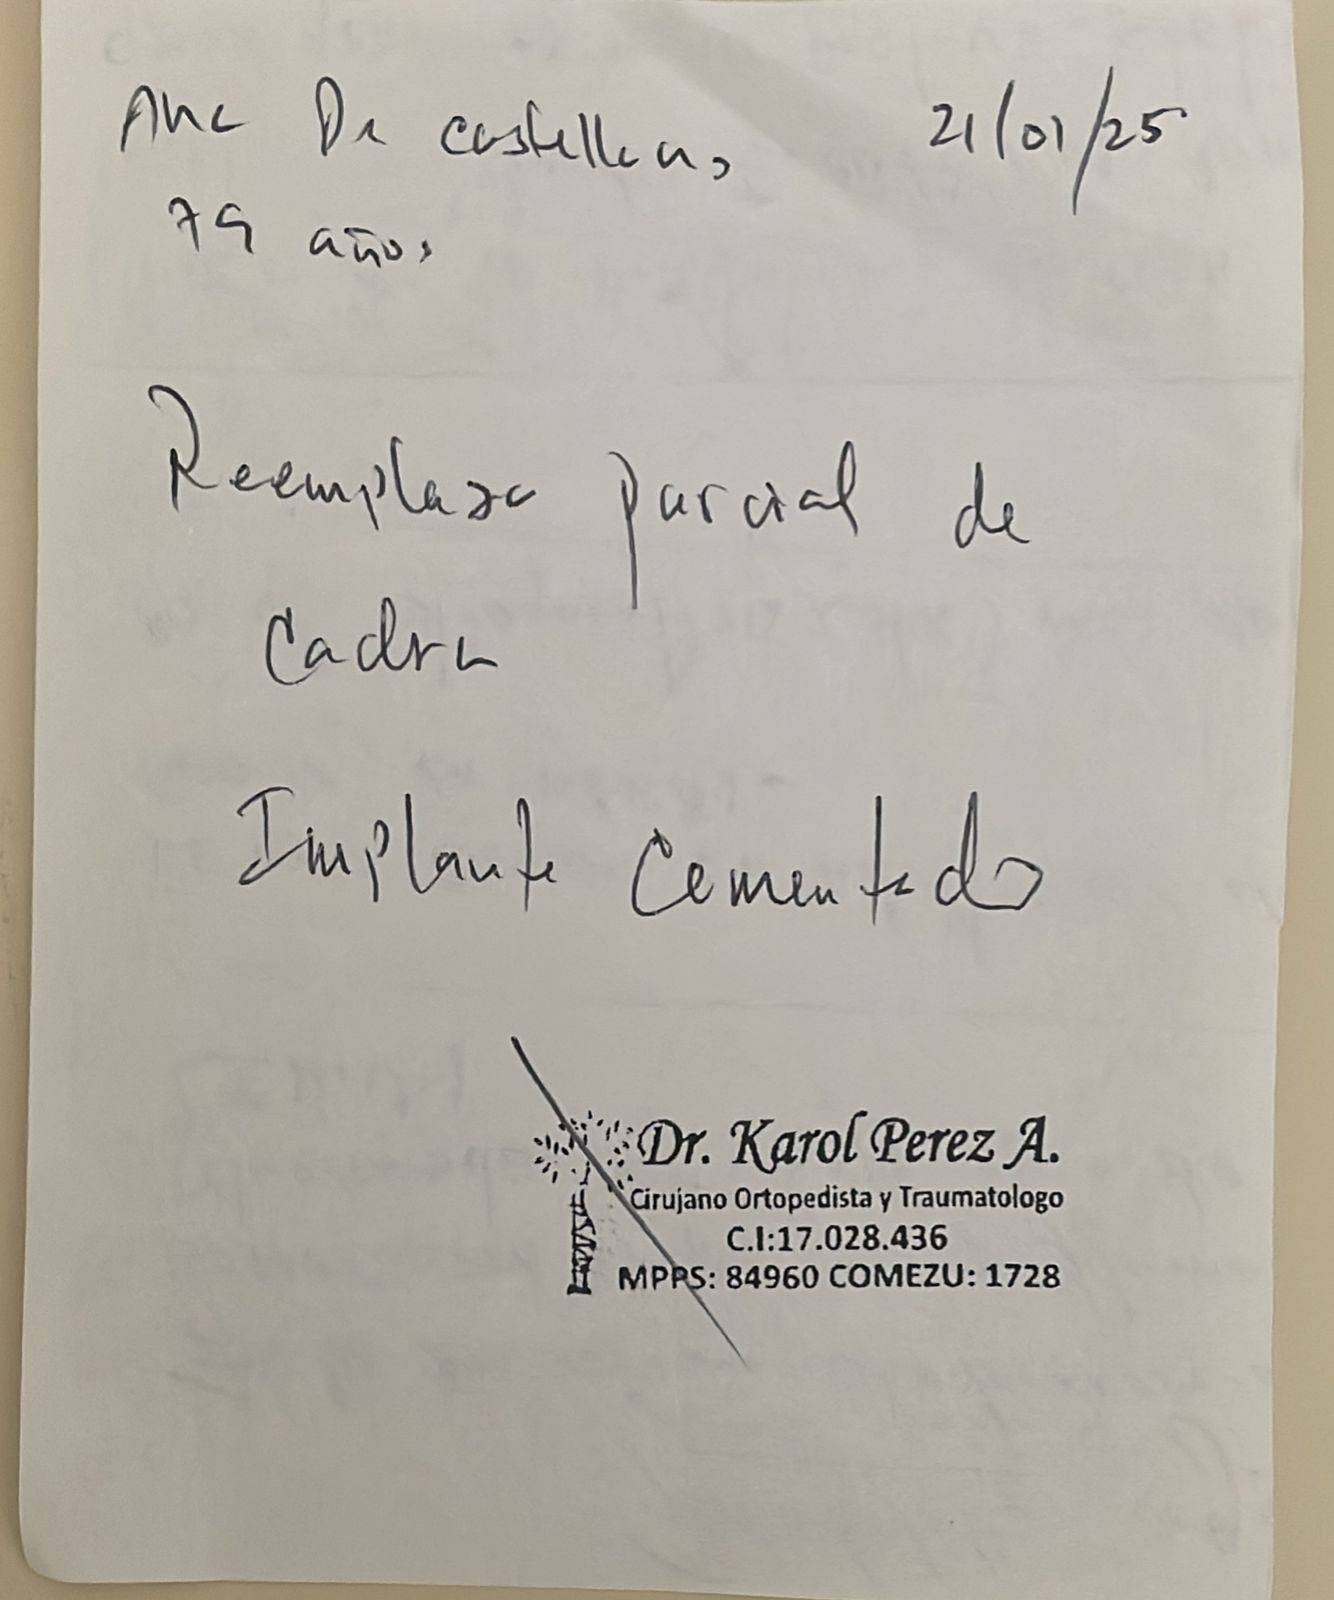 Ana De Castellan, 21/01/25
79 años
Reemplazo parcial de
Cadera
Implante Cementado
Dr. Karol Perez A.
Cirujano Ortopedista y Traumatologo
C.I:17.028.436
MPPS: 84960 COMEZU: 1728